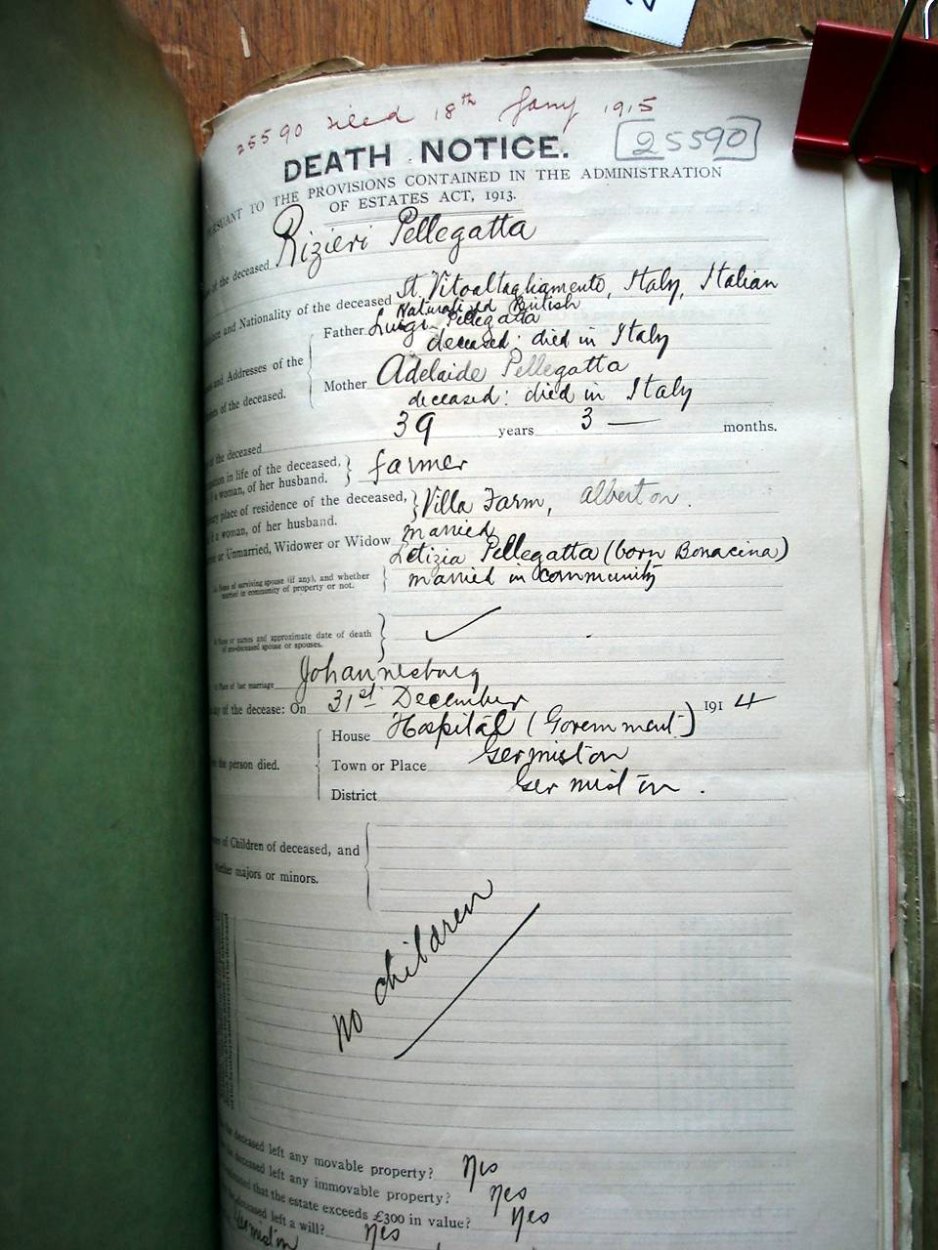 25590 filed 18th Jany 1915
25590
DEATH NOTICE.
TO THE PROVISIONS CONTAINED IN THE ADMINISTRATION
OF ESTATES ACT, 1913.
of the deceased Rizieri Pellegatta
and Nationality of the deceased St. Vitoaltagliamento, Italy, Italian
Naturalised British
Father Luigi Pellegatta
deceased: died in Italy
and Addresses of the
Mother Adelaide Pellegatta
of the deceased.
deceased: died in Italy
of the deceased 39 years 3 — months.
in life of the deceased, farmer
a woman, of her husband.
place of residence of the deceased, Villa Farm, Alberton
a woman, of her husband.
or Unmarried, Widower or Widow married
Letizia Pellegatta (born Bonacina)
Name of surviving spouse (if any), and whether
married in community of property or not. married in community
Name or names and approximate date of death
of pre-deceased spouse or spouses.
Place of last marriage Johannesburg
of the decease: On 31st December 1914
House Hospital (Government)
the person died. Town or Place Germiston
District Germiston.
of Children of deceased, and
majors or minors.
No children
deceased left any movable property? Yes
deceased left any immovable property? Yes
that the estate exceeds £300 in value? Yes
deceased left a will? Yes